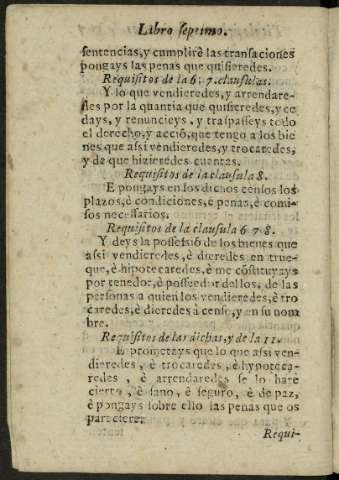 Libro septimo.
sentencias, y cumplirè las transaciones
pongays las penas que quisieredes.
Requisitos de la 6. 7. clausulas.
Y lo que vendieredes, y arrendare-
des por la quantia que quisieredes, y ce
days, y renuncieys, y traspasseys todo
el derecho, y acciõ, que tengo a los bie
nes que assi vendieredes, y trocaredes,
y de que hizieredes cuentas.
Requisitos de la clausula 8.
E pongays en los dichos censos los
plazos, è condiciones, è penas, è comi-
sos necessarios.
Requisitos de la clausula 6 7 8.
Y deys la possessiõ de los bienes que
assi vendieredes, è dieredes en true-
que, è hipotecaredes, è me cõstituyays
por tenedor, è posseedor dellos, de las
personas a quien los vendieredes, è tro
caredes, è dieredes à censo, y en su nom
bre.
Requisitos de las dichas, y de la 11.
E prometays que lo que assi ven-
dieredes, è trocaredes, è hypoteca-
redes, è arrendaredes se lo harè
cierto, è sano, è seguro, è de paz,
è pongays sobre ello las penas que os
pareciere.
Requi-